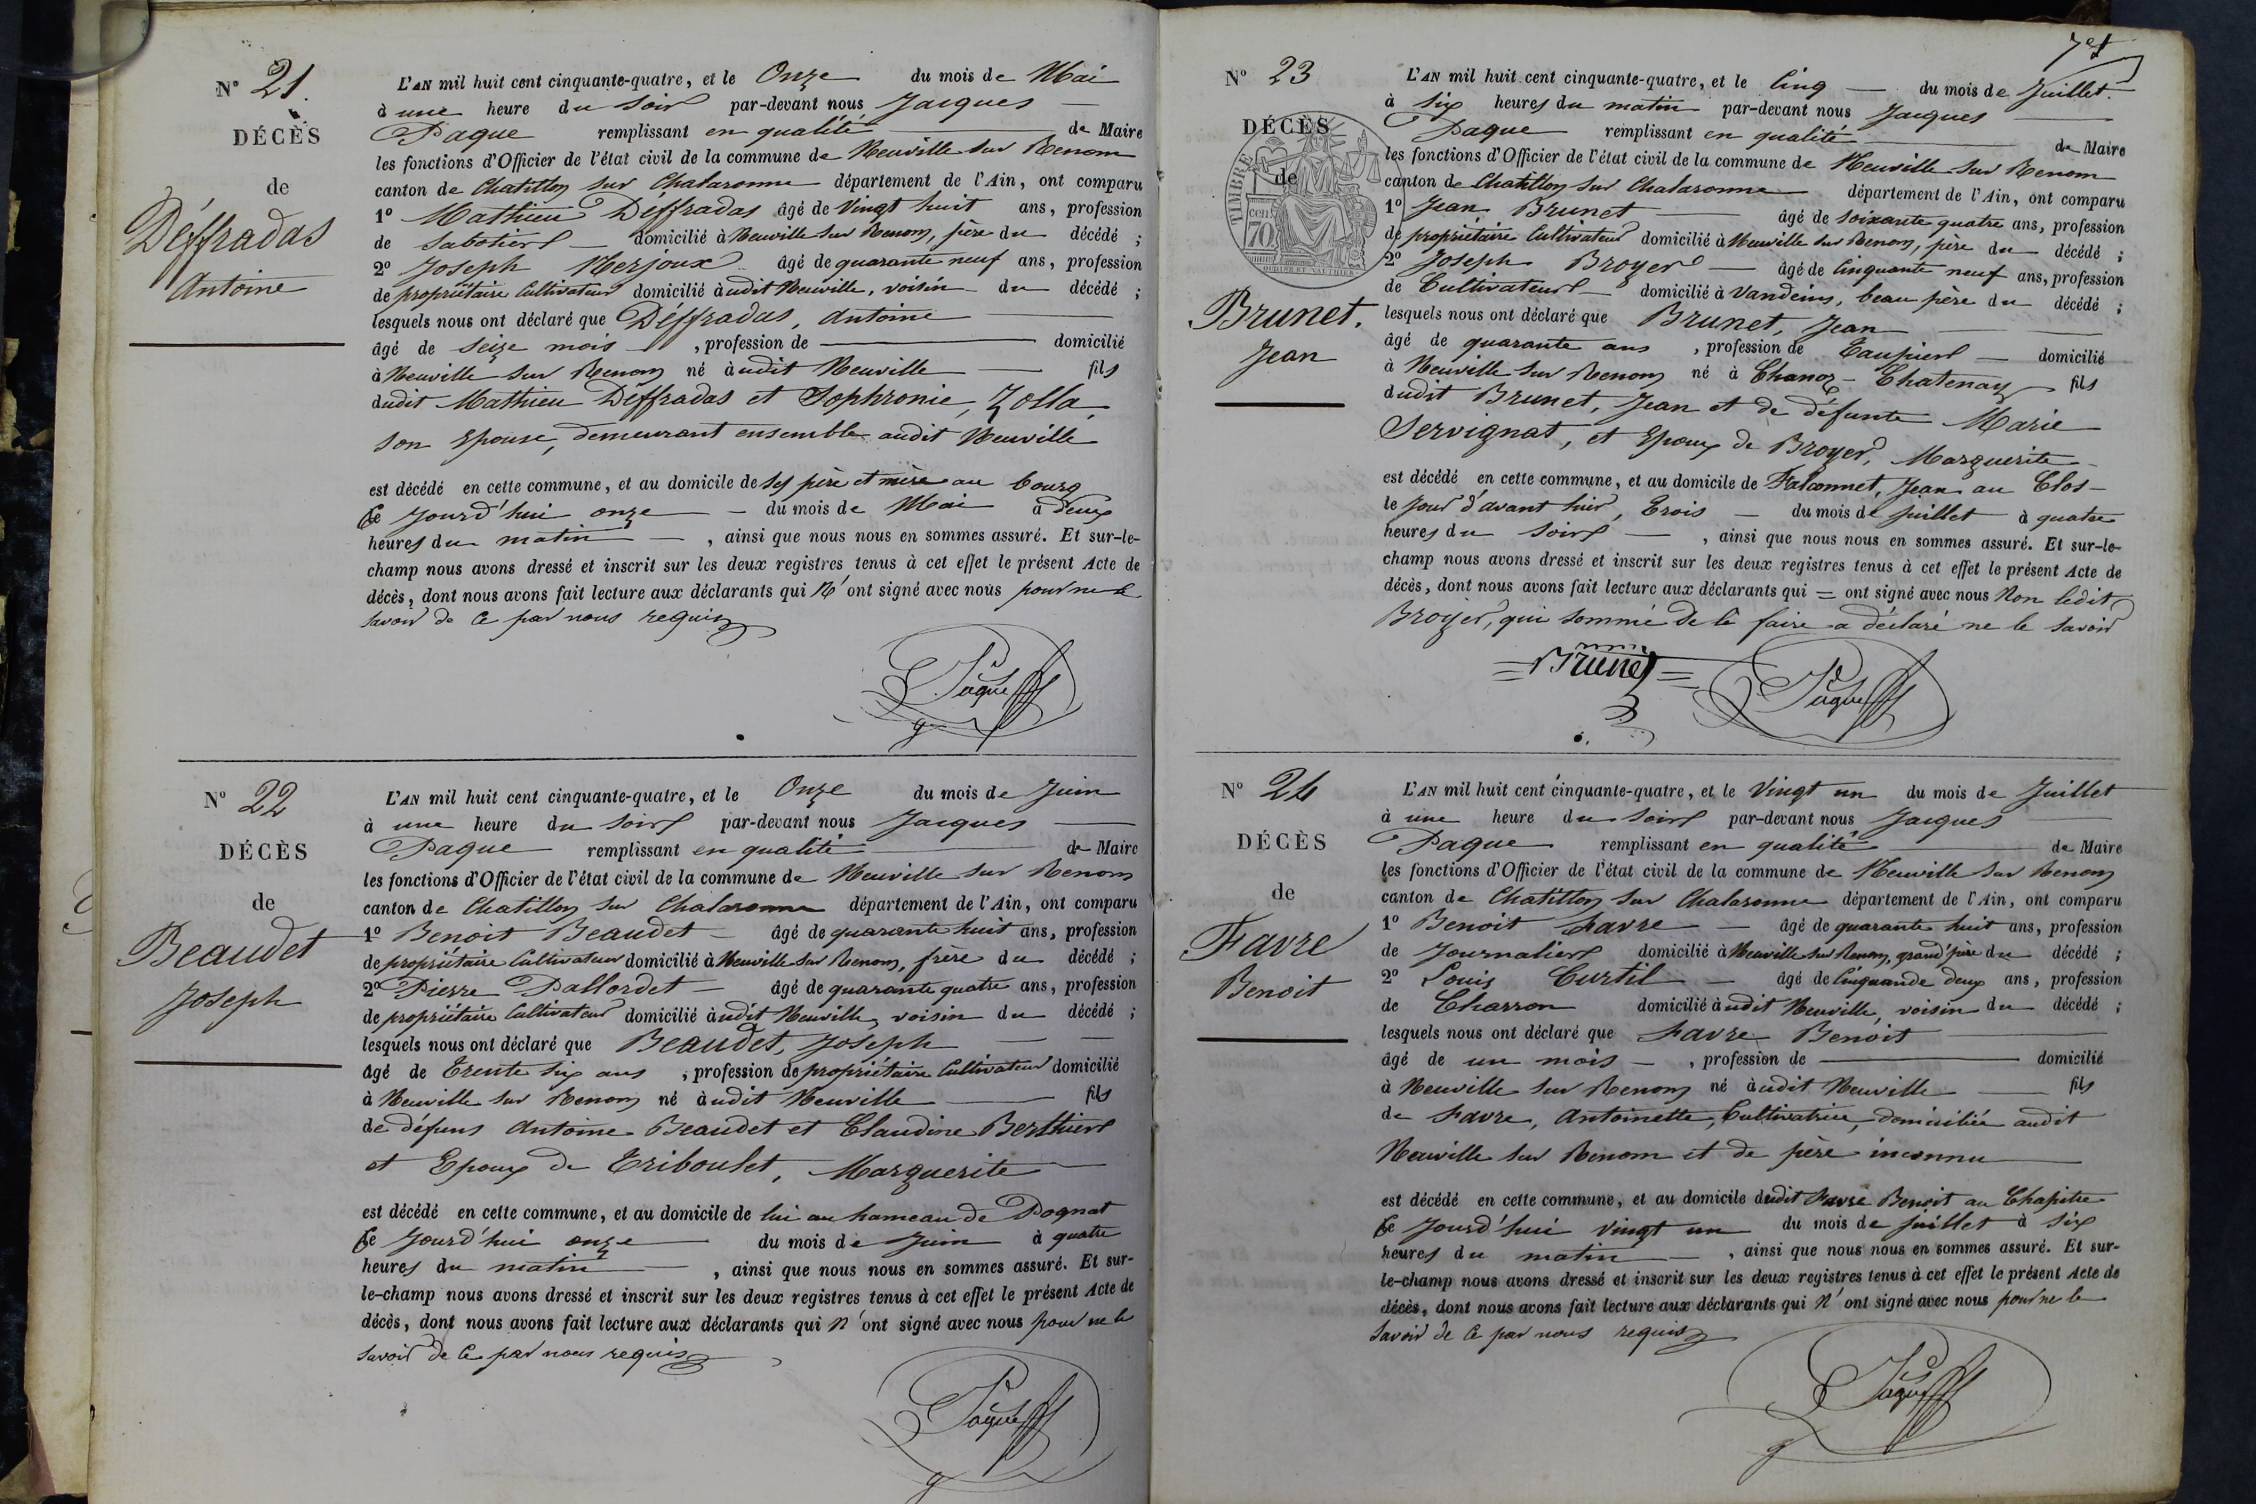 N° 21.
DÉCÈS
de
Déffradas
Antoine
L'AN mil huit cent cinquante-quatre, et le Onze du mois de Mai
à une heure du soir par-devant nous Jacques
Paque remplissant en qualité de Maire
les fonctions d'Officier de l'état civil de la commune de Neuville sur Renom
canton de Chatillon sur Chalaronne département de l'Ain, ont comparu
1° Mathieu Déffradas âgé de Vingt huit ans, profession
de Sabotier domicilié à Neuville sur Renom, père du décédé ;
2° Joseph Merjoux âgé de quarante neuf ans, profession
de propriétaire Cultivateur domicilié àudit Neuville, voisin du décédé ;
lesquels nous ont déclaré que Déffradas, Antoine
âgé de seize mois , profession de domicilié
à Neuville sur Renom né àudit Neuville fils
dudit Mathieu Déffradas et Sophronie, Zolla,
son Epouse, demeurant ensemble audit Neuville
est décédé en cette commune, et au domicile de ses père et mère au bourg
Ce jourd'hui onze du mois de Mai à deux
heures du matin , ainsi que nous nous en sommes assuré. Et sur-le-
champ nous avons dressé et inscrit sur les deux registres tenus à cet effet le présent Acte de
décès, dont nous avons fait lecture aux déclarants qui n'ont signé avec nous pour ne le
savoir de ce par nous requis
Paque
N° 22
DÉCÈS
de
Beaudet
Joseph
L'AN mil huit cent cinquante-quatre, et le Onze du mois de Juin
à une heure du soir par-devant nous Jacques
Paque remplissant en qualité de Maire
les fonctions d'Officier de l'état civil de la commune de Neuville sur Renom
canton de Chatillon sur Chalaronne département de l'Ain, ont comparu
1° Benoit Beaudet âgé de quarante huit ans, profession
de propriétaire Cultivateur domicilié à Neuville sur Renom, frère du décédé ;
2° Pierre Pallordet âgé de quarante quatre ans, profession
de propriétaire Cultivateur domicilié àudit Neuville, voisin du décédé ;
lesquels nous ont déclaré que Beaudet, Joseph
âgé de Trente six ans , profession de propriétaire Cultivateur domicilié
à Neuville sur Renom né àudit Neuville fils
de défuns Antoine Beaudet et Claudine Berthier
et Epoux de Triboulet, Marguerite
est décédé en cette commune, et au domicile de lui au hameau de Pognat
Ce jourd'hui onze du mois de Juin à quatre
heures du matin , ainsi que nous nous en sommes assuré. Et sur-
le-champ nous avons dressé et inscrit sur les deux registres tenus à cet effet le présent Acte de
décès, dont nous avons fait lecture aux déclarants qui n'ont signé avec nous pour ne le
savoir de ce par nous requis
Paque
N° 23
DÉCÈS
de
TIMBRE
cen. 70
Brunet.
Jean
L'AN mil huit cent cinquante-quatre, et le Cinq du mois de Juillet
à six heures du matin par-devant nous Jacques
Paque remplissant en qualité de Maire
les fonctions d'Officier de l'état civil de la commune de Neuville sur Renom
canton de Chatillon sur Chalaronne département de l'Ain, ont comparu
1° Jean Brunet âgé de soixante quatre ans, profession
de propriétaire Cultivateur domicilié à Neuville sur Renom, père du décédé ;
2° Joseph Broyer âgé de Cinquante neuf ans, profession
de Cultivateur domicilié à Vandeins, beau père du décédé ;
lesquels nous ont déclaré que Brunet, Jean
âgé de quarante ans , profession de Taupier domicilié
à Neuville sur Renom né à Chanoz-Chatenay fils
dudit Brunet, Jean et de défunte Marie
Servignat, et Epoux de Broyer, Marguerite
est décédé en cette commune, et au domicile de Falconnet, Jean au Clos
le jour d'avant hier, Trois du mois de Juillet à quatre
heures du soir , ainsi que nous nous en sommes assuré. Et sur-le-
champ nous avons dressé et inscrit sur les deux registres tenus à cet effet le présent Acte de
décès, dont nous avons fait lecture aux déclarants qui = ont signé avec nous Non ledit
Broyer, qui sommé de le faire a déclaré ne le savoir
Brunet Paque
N° 24
DÉCÈS
de
Favre
Benoit
L'AN mil huit cent cinquante-quatre, et le Vingt un du mois de Juillet
à une heure du soir par-devant nous Jacques
Paque remplissant en qualité de Maire
les fonctions d'Officier de l'état civil de la commune de Neuville sur Renom
canton de Chatillon sur Chalaronne département de l'Ain, ont comparu
1° Benoit Favre âgé de quarante huit ans, profession
de Journalier domicilié à Neuville sur Renom, grand'père du décédé ;
2° Louis Curtil âgé de Cinquande deux ans, profession
de Charron domicilié àudit Neuville, voisin du décédé ;
lesquels nous ont déclaré que Favre Benoit
âgé de un mois , profession de domicilié
à Neuville sur Renom né àudit Neuville fils
de Favre, Antoinette, Cultivatrice, domiciliée audit
Neuville sur Renom et de père inconnu
est décédé en cette commune, et au domicile dudit Favre Benoit au Chapitre
Ce jourd'hui vingt un du mois de Juillet à six
heures du matin , ainsi que nous nous en sommes assuré. Et sur-
le-champ nous avons dressé et inscrit sur les deux registres tenus à cet effet le présent Acte de
décès, dont nous avons fait lecture aux déclarants qui n'ont signé avec nous pour ne le
savoir de ce par nous requis
Paque